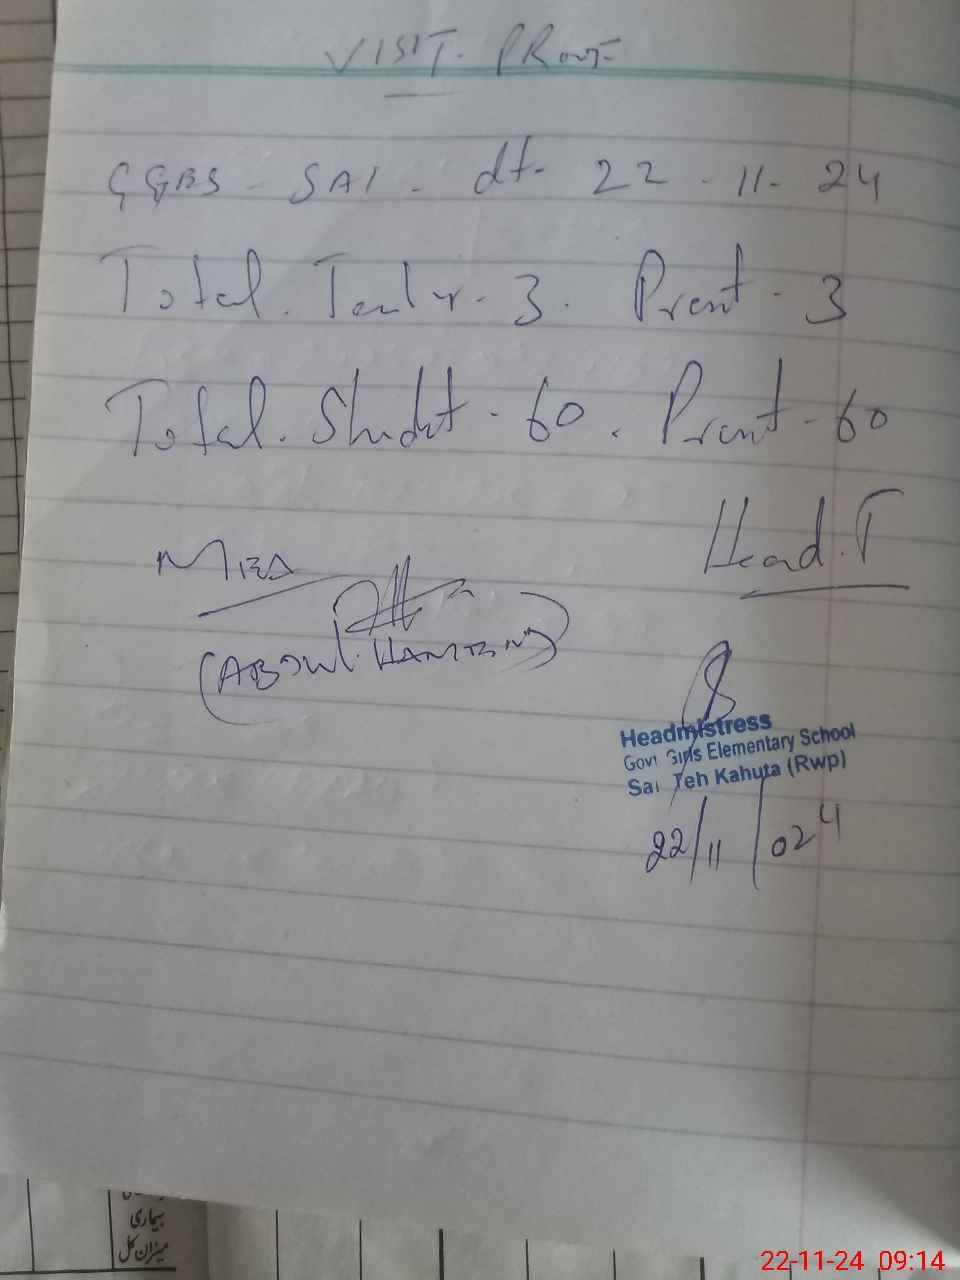 VISIT. PROOF
GGES - SAI - dt- 22 - 11 - 24
Total. Teacher - 3. Present - 3
Total. Student - 60. Present - 60
Head.T
(ABDUL.
Headmistress
Govt Girls Elementary School
Sai Teh Kahuta (Rwp)
22/11/024
بیماری
میزان کل
22-11-24 09:14